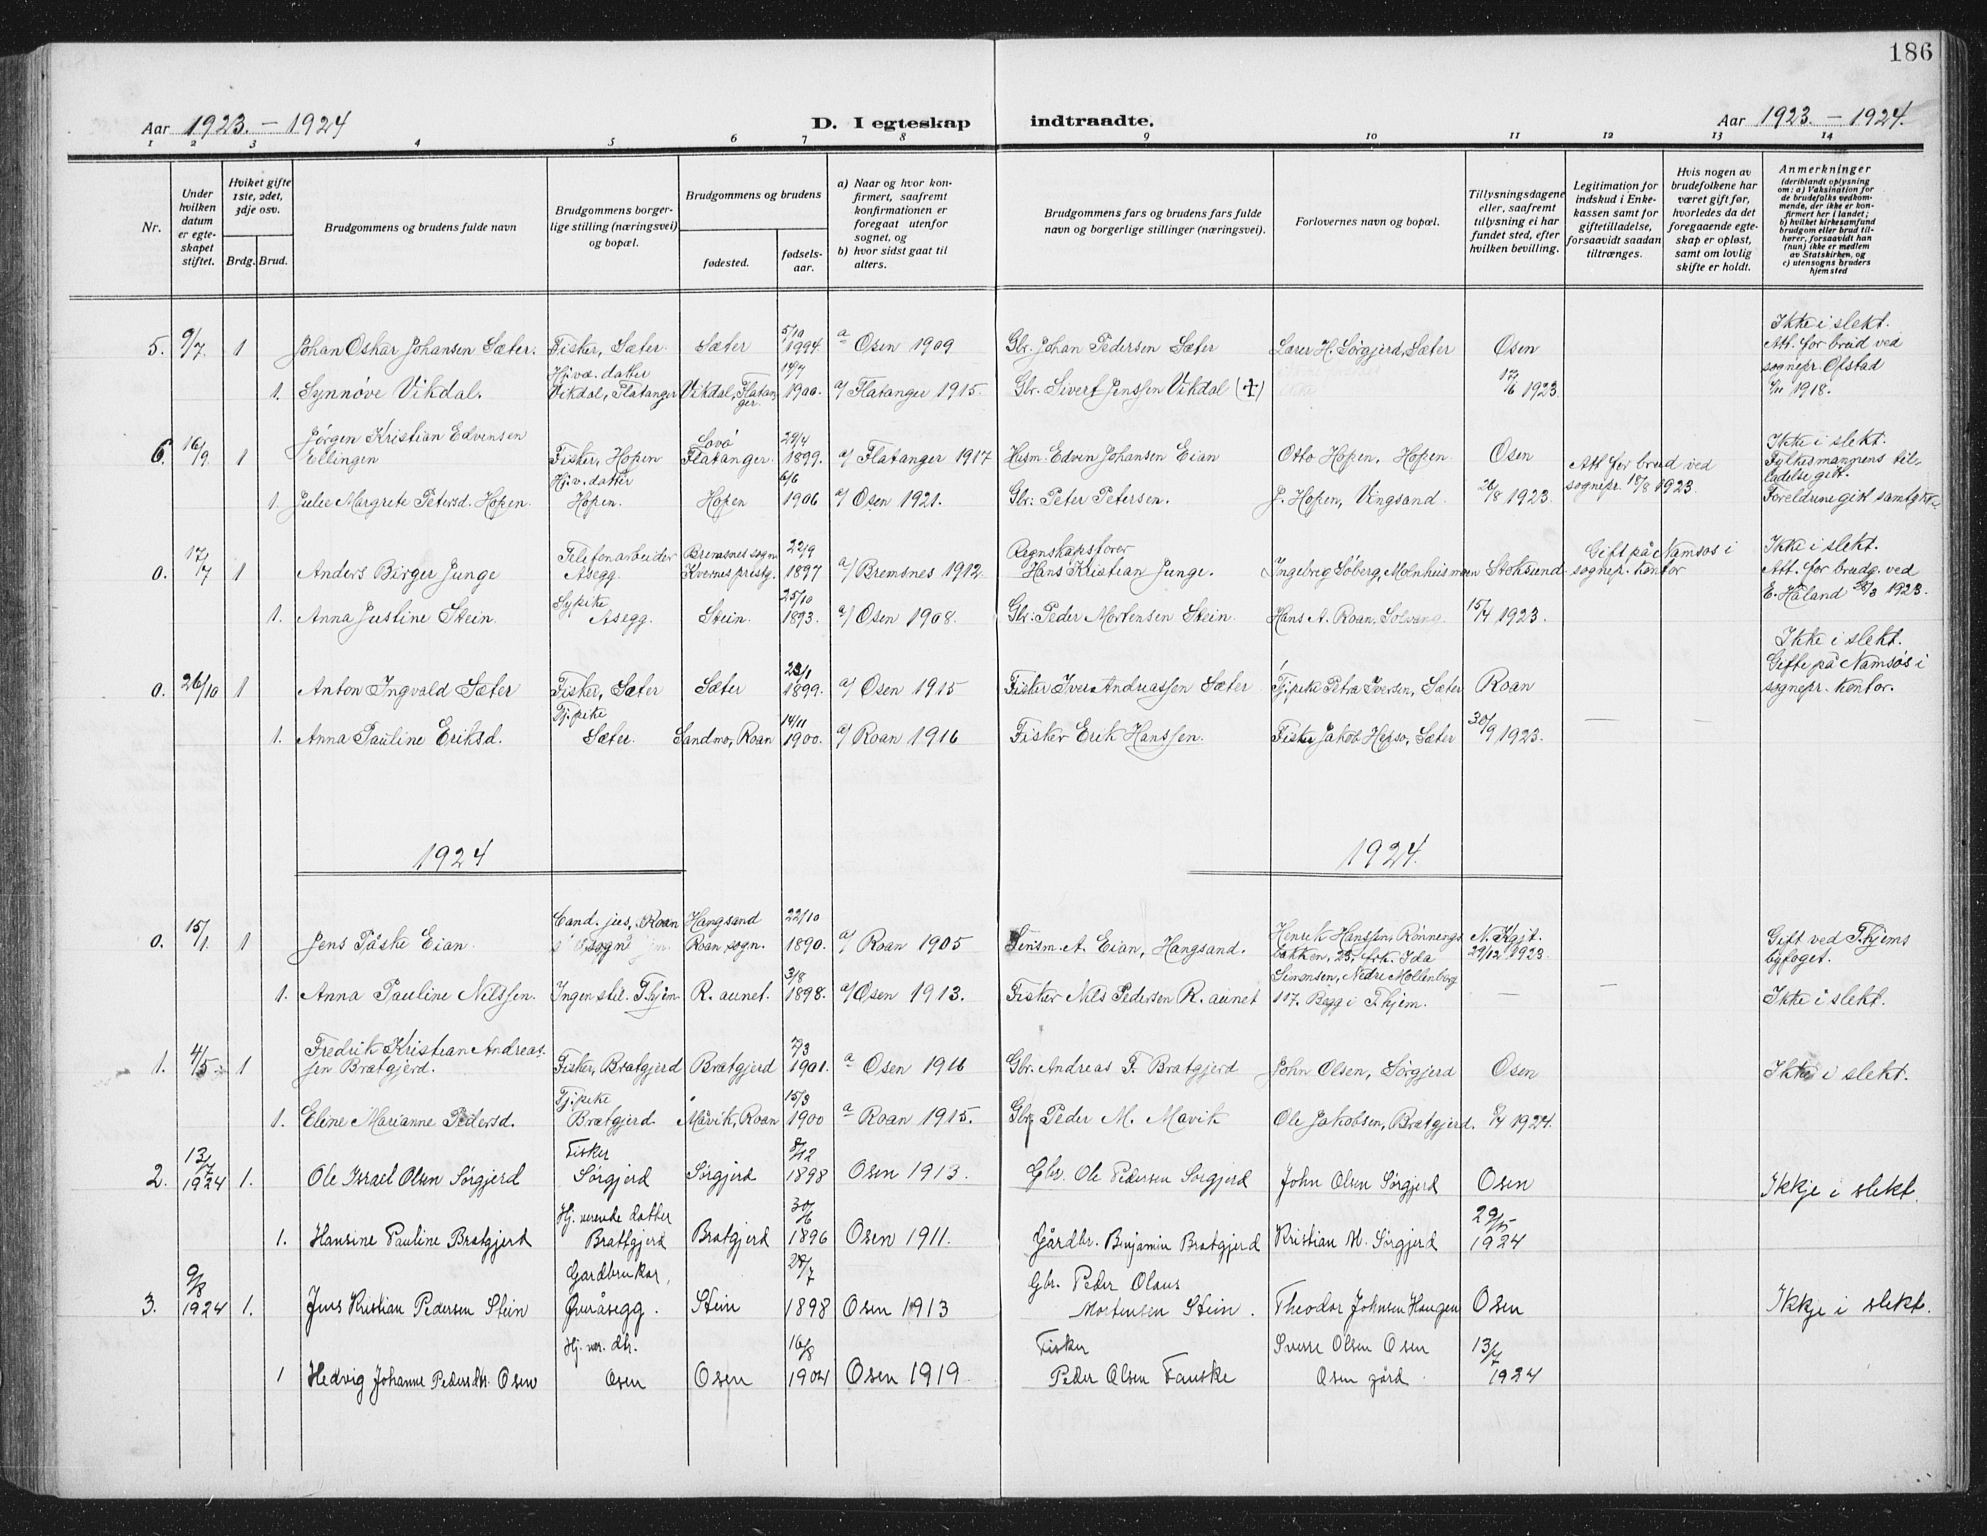 186
Aar 1923. – 1924
D. I egteskap indtraadte.
Aar 1923. – 1924.
1 2 3 4 5 6 7 8 9 10 11 12 13 14
Nr.
Under hvilken datum er egteskapet stiftet.
Hviket gifte 1ste, 2det, 3dje osv.
Brdg. Brud.
Brudgommens og brudens fulde navn
Brudgommens borgerlige stilling (næringsvei) og bopæl.
Brudgommens og brudens
fødested.
fødselsaar.
a) Naar og hvor konfirmert, saafremt konfirmationen er foregaat utenfor sognet, og
b) hvor sidst gaat til alters.
Brudgommens fars og brudens fars fulde navn og borgerlige stillinger (næringsvei).
Forlovernes navn og bopæl.
Tillysningsdagene eller, saafremt tillysning ei har fundet sted, efter hvilken bevilling.
Legitimation for indskud i Enkekassen samt for giftetilladelse, forsaavidt saadan tiltrænges.
Hvis nogen av brudefolkene har været gift før, hvorledes da det foregaaende egteskap er opløst, samt om lovlig skifte er holdt.
Anmerkninger (deriblandt oplysning om: a) Vaksination for de brudefolks vedkommende, der ikke er konfirmert her i landet; b) hvilket kirkesamfund brudgom eller brud tilhører, forsaavidt han (hun) ikke er medlem av Statskirken, og c) utensogns bruders hjemsted
5. 9/7. 1 Johan Oskar Johansen Sæter. Fisker, Sæter. Sæter 5/10 1994. a Osen 1909 Gbr. Johan Pedersen Sæter Lærer H. Sørgjerd, Sæter Osen Ikke i slekt. Att. for brud ved sognepr. Ofstad 1918.
1. Synnøve Vikdal. Hj.væ. datter Vikdal, Flatanger Vikdal, Flatanger. 1900. a/ Flatanger 1915. Gbr. Sivert Jenssen Vikdal (+) 17/6 1923.
6. 16/9. 1 Jørgen Kristian Edvinsen Ellingen Fisker, Hopen Lovö Flatanger. 29/4 1899. a/ Flatanger 1917 Husm. Edvin Johansen Eian Otto Hopen, Hopen. Osen Att for brud ved sognepr. 18/8 1923. Ikke i slekt. Fylkesmannens tilladelse gitt.
1. Julie Margrete Petersd. Hopen. Hj.v. datter Hopen. Hopen 6/6 1906 a/ Osen 1921. Gbr: Peter Petersen. J. Hopen, Vingsand. 26/8 1923. Foreldrene gitt samtykke
0. 17/7 1 Anders Birger Junge Telefonarbeider Åsegg. Bremsnes sogn Kvernes prestg. 22/9 1897 a/ Bremsnes 1912. Regnskapsfører Hans Kristian Junge. Ingebrig Söberg, Molnhusmoen Stoksund Gift på Namsos i sognepr. kontor Ikke i slekt. Att. for brudg. ved E. Håland 1923.
1. Anna Justine Stein. Sypike Åsegg. Stein. 25/10 1893. a/ Osen 1908. Gbr: Peder Mortensen Stein. Hans A. Roan, Solvang. 15/4 1923.
0. 26/10 1 Anton Ingvald Sæter Fisker, Sæter Sæter 23/1 1899. a/ Osen 1915 Fisker Iver Andreassen Sæter Tj.pike Petra Iversen, Sæter Roan Ikke i slekt. Gifte på Namsos i sognepr. kontor.
1. Anna Pauline Eriksd. Tj.pike Sæter. Sandmo, Roan 14/11 1900. a/ Roan 1916 Fisker Erik Hanssen. Fisker Jakob Hepsø, Sæter 30/9 1923. — —
1924 1924.
0. 15/1. 1 Jens Påske Eian. Cand. jur., Roan sogn Hangsand Roan sogn. 22/10 1890. a/ Roan 1905 Lensm. A. Eian, Hangsand. Henrik Hanssen, Rønningsbakken, 23, frk. Ida N. Kgjt. 29/12 1923. Gift ved T.hjems byfoget.
1. Anna Pauline Nilssen. Ingen stil. T.hjem R. aunet. 3/8 1898. a/ Osen 1913. Fisker Nils Pedersen R. aunet Simonsen, Nedre Møllenberg 117. Begg i T.hjem. — — Ikke i slekt.
1. 4/5. 1 Fredrik Kristian Andreassen Bratgjerd. Fisker, Bratgjerd Bratgjerd 7/3 1901. a Osen 1916 Gbr. Andreas F. Bratgjerd John Olsen, Sørgjerd Osen Ikke i slekt.
1. Eline Marianne Pedersd. Tj.pike Bratgjerd. Måvik, Roan 15/3 1900 a Roan 1915. Gbr. Peder M. Mavik Ole Jakobsen, Bratgjerd. 1924.
2. 13/7 1924 1. Ole Israel Olsen Sörgjerd Fisker Sörgjerd Sörgjerd 8/12 1898 Osen 1913. Gbr. Ole Pedersen Sörgjerd John Olsen Sörgjerd Osen Ikkje i slekt.
1. Hansine Pauline Bratgjerd Hj. verende datter Brattgjerd Bratgjerd 30/6 1896 Osen 1911. Gårdbr. Benjamin Bratgjerd Kristian M. Sörgjerd 29/5 1924
3. 9/8 1924 1. Jens Kristian Pedersen Stein Gardbrukar, Øveråsegg. Stein 28/7 1898 Osen 1913 Gbr. Peder Olaus Mortensen Stein. Theodor Johnsen Haugen Osen Ikkje i slekt.
1 Hedvig Johanne Pedersdtr. Osen Hj. ver. dtr. Osen Osen 16/8 1904 Osen 1919 Fisker Peder Olsen Fauske Sverre Olsen Osen Osen gård 13/7 1924